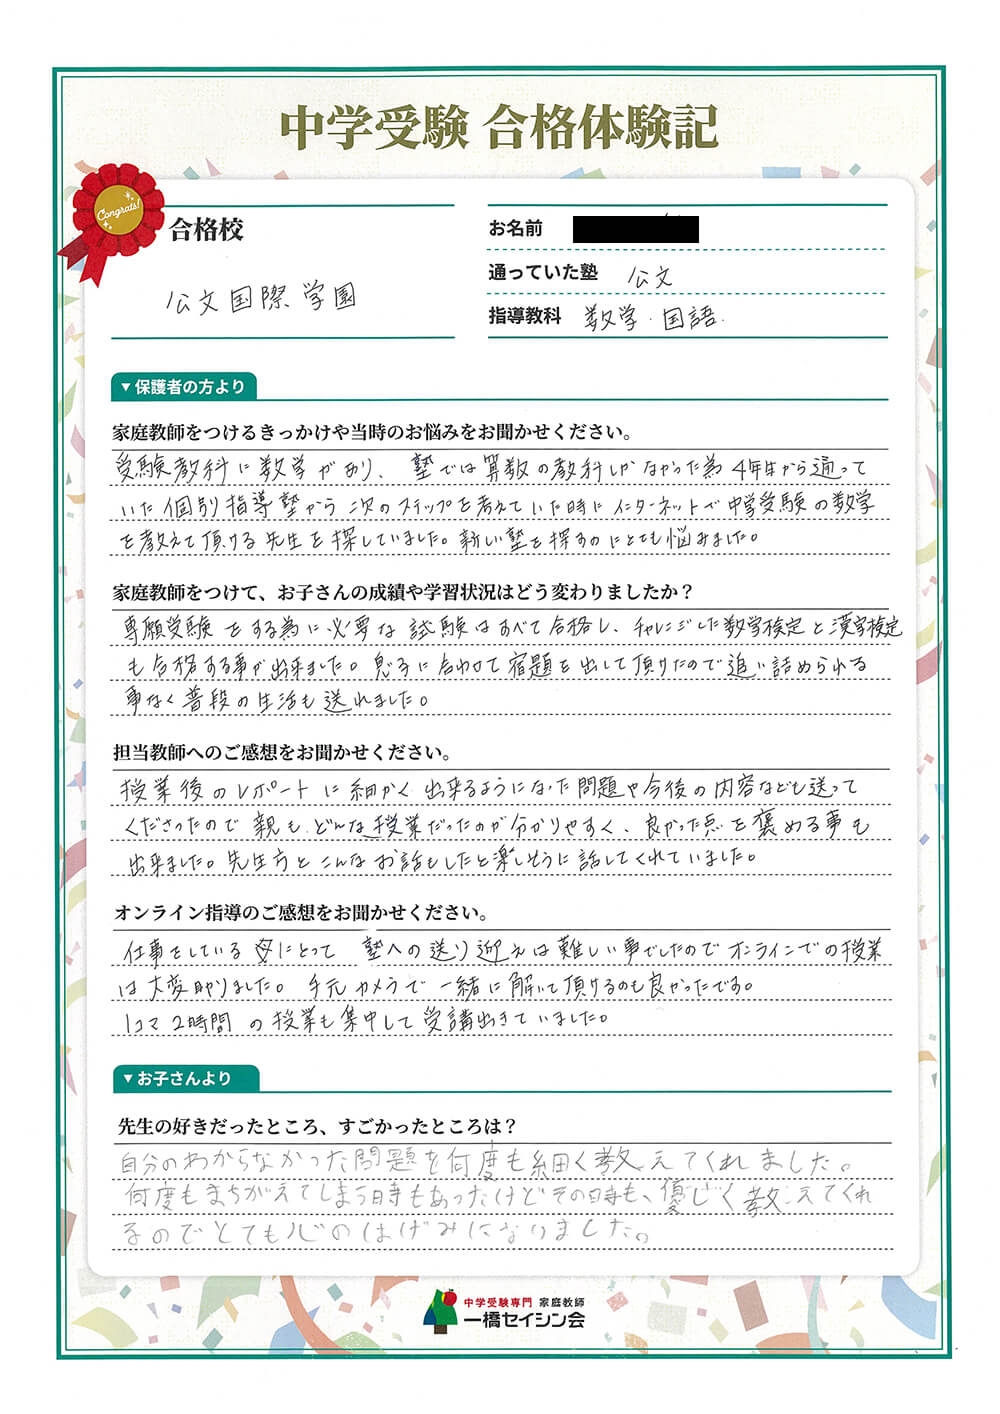 中学受験 合格体験記
Congrats!
合格校
公文国際学園
お名前
通っていた塾 公文
指導教科 数学・国語.
▼保護者の方より
家庭教師をつけるきっかけや当時のお悩みをお聞かせください。
受験教科に数学があり、塾では算数の教科しかなかった為4年生から通って
いた個別指導塾から次のステップを考えていた時にインターネットで中学受験の数学
を教えて頂ける先生を探していました。新しい塾を探すのにとても悩みました。
家庭教師をつけて、お子さんの成績や学習状況はどう変わりましたか？
専願受験をする為に必要な試験はすべて合格し、チャレンジした数学検定と漢字検定
も合格する事が出来ました。息子に合わせて宿題を出して頂けたので追い詰められる
事なく普段の生活も送れました。
担当教師へのご感想をお聞かせください。
授業後のレポートに細かく出来るようになった問題や今後の内容なども送って
くださったので親もどんな授業だったのか分かりやすく、良かった点を褒める事も
出来ました。先生方とこんなお話もしたと楽しそうに話してくれていました。
オンライン指導のご感想をお聞かせください。
仕事をしている母にとって塾への送り迎えは難しい事でしたのでオンラインでの授業
は大変助かりました。手元カメラで一緒に解いて頂けるのも良かったです。
1コマ2時間の授業も集中して受講出きていました。
▼お子さんより
先生の好きだったところ、すごかったところは？
自分のわからなかった問題を何度も細く教えてくれました。
何度もまちがえてしまう時もあったけどその時も、優しく教えてくれ
るのでとても心のはげみになりました。
中学受験専門 家庭教師
一橋セイシン会